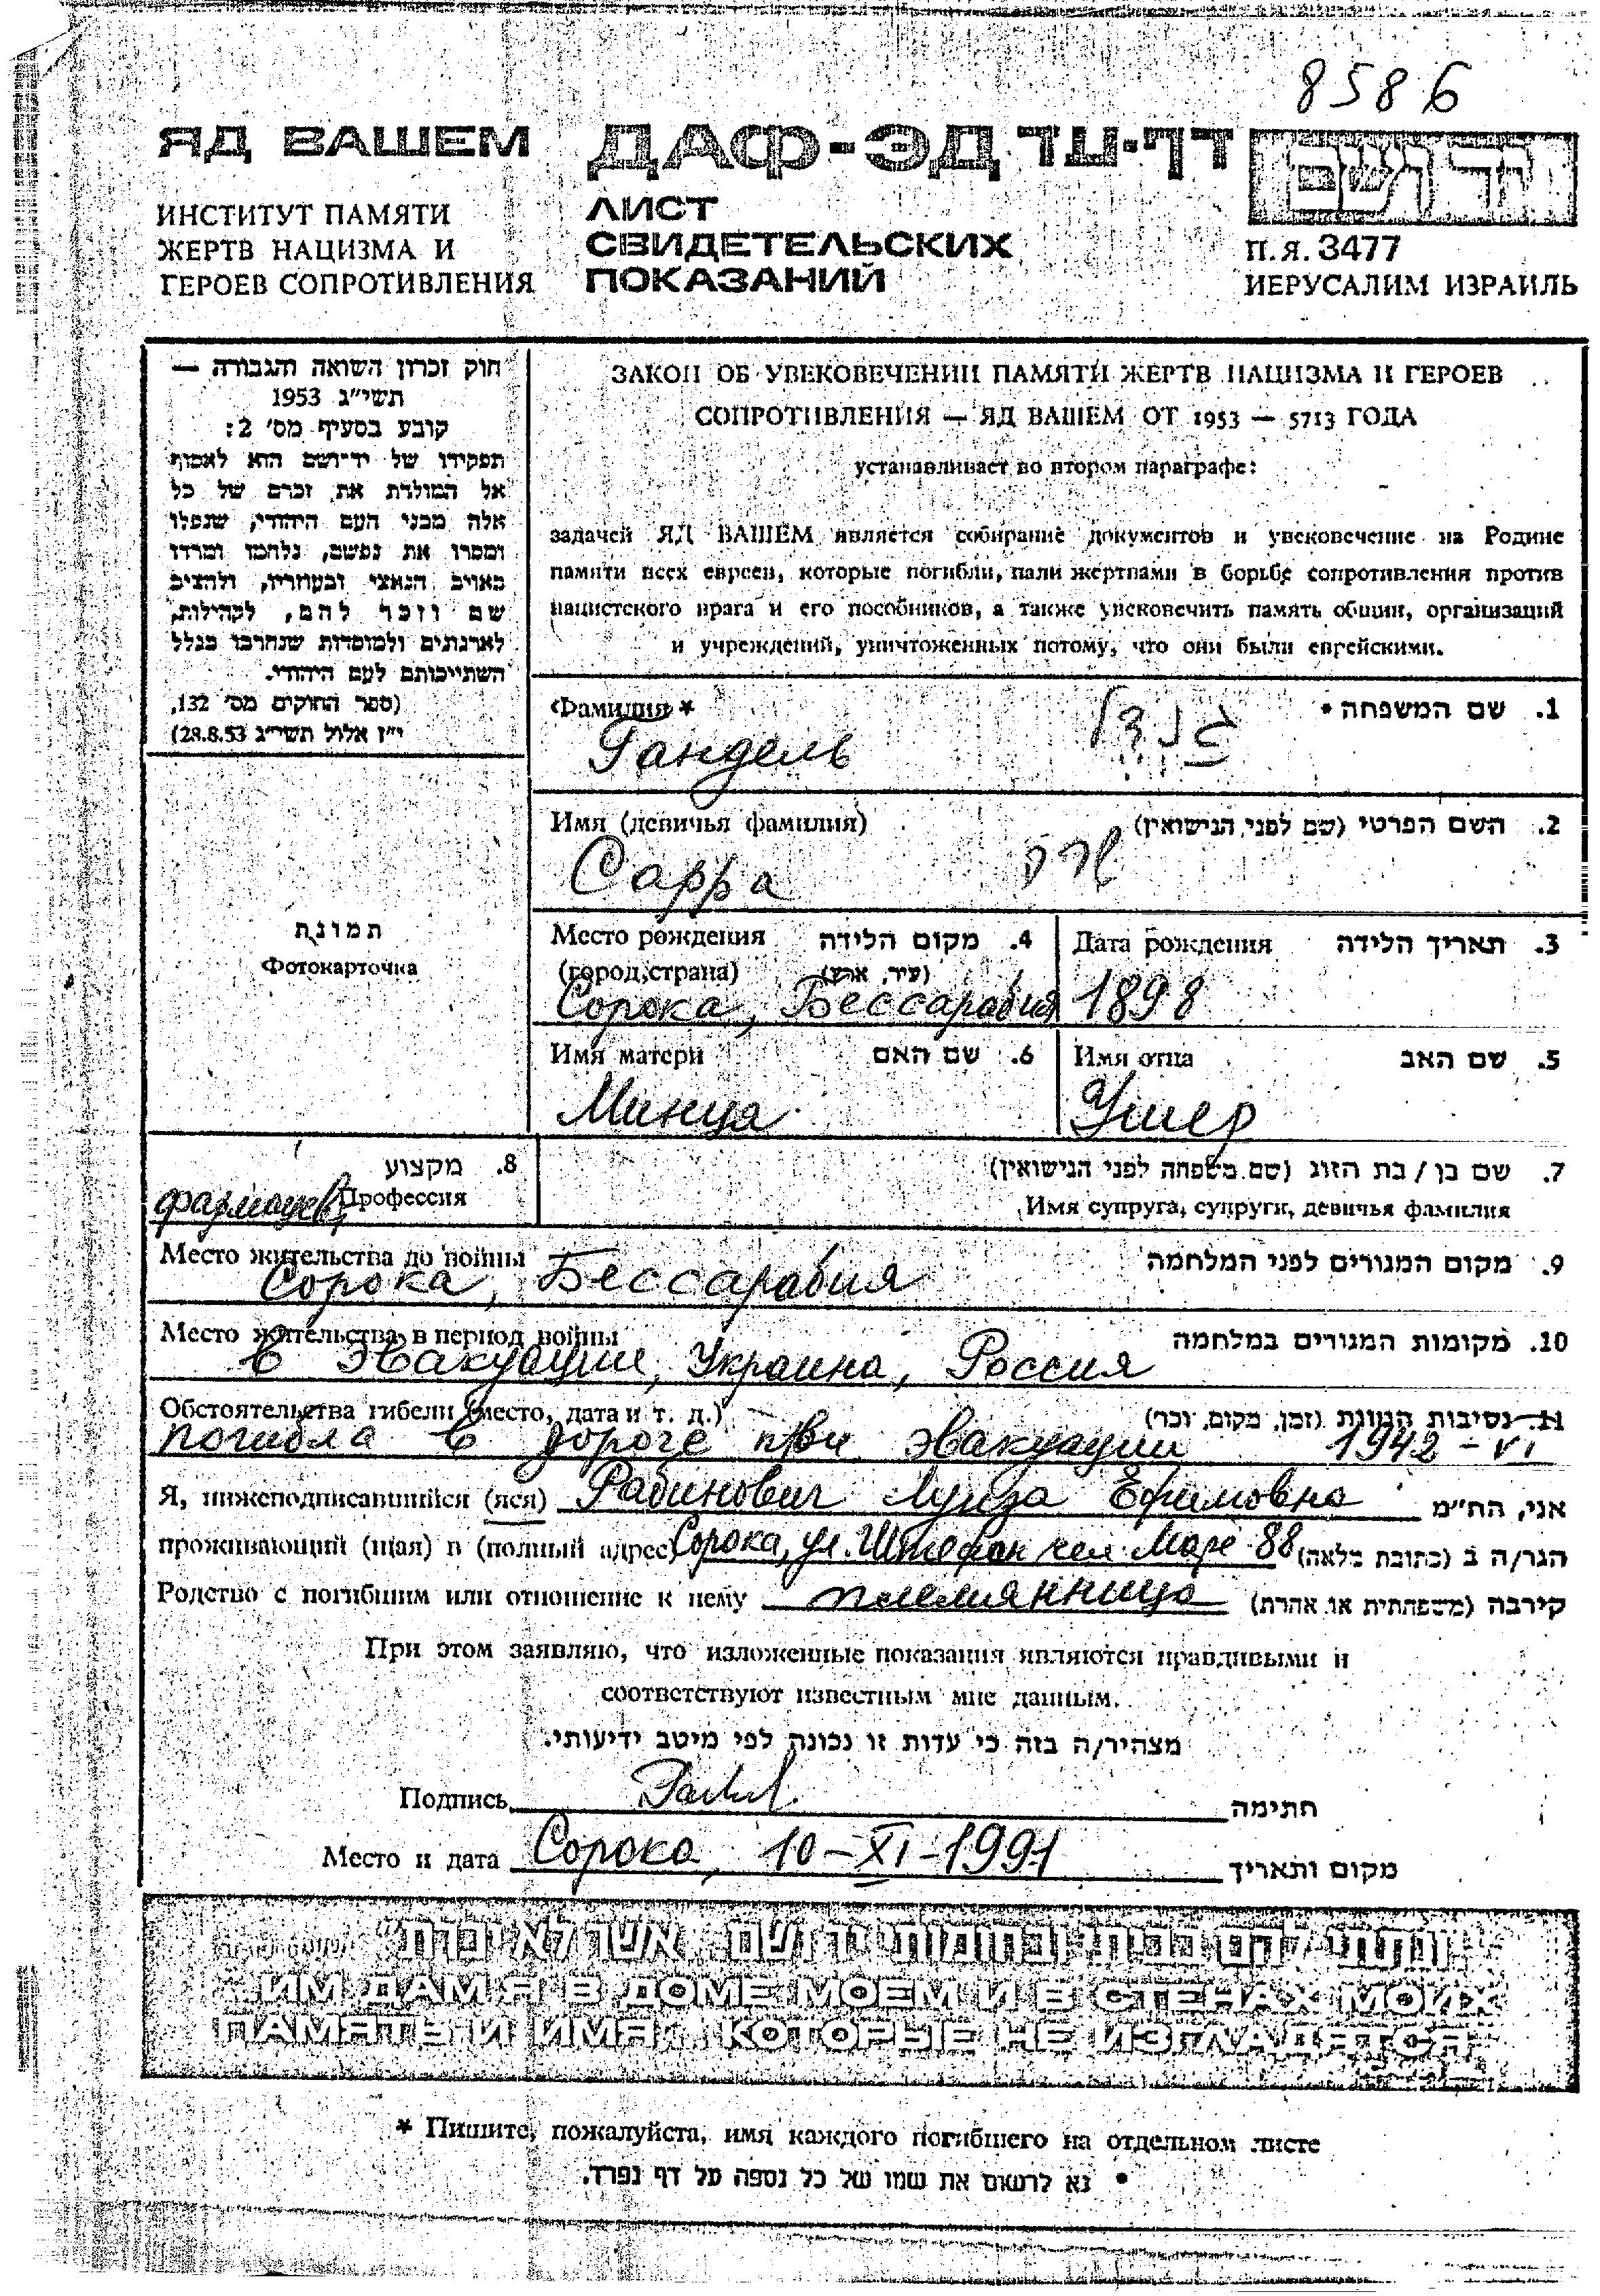 8586
ЯД ВАШЕМ
ИНСТИТУТ ПАМЯТИ
ЖЕРТВ НАЦИЗМА И
ГЕРОЕВ СОПРОТИВЛЕНИЯ
ДАФ-ЭД דף-עד
ЛИСТ
СВИДЕТЕЛЬСКИХ
ПОКАЗАНИЙ
יד ושם
П.Я. 3477
ИЕРУСАЛИМ ИЗРАИЛЬ
חוק זכרון השואה והגבורה —
תשי"ג 1953
קובע בסעיף מס' 2:
תפקידו של יד־ושם הוא לאסוף
אל המולדת את זכרם של כל
אלה מבני העם היהודי, שנפלו
ומסרו את נפשם, נלחמו ומרדו
באויב הנאצי ובעוזריו, ולהציב
שם וזכר להם, לקהילות,
לארגונים ולמוסדות שנחרבו בגלל
השתייכותם לעם היהודי.
(ספר החוקים מס' 132,
י"ז אלול תשי"ג 28.8.53)
ЗАКОН ОБ УВЕКОВЕЧЕНИИ ПАМЯТИ ЖЕРТВ НАЦИЗМА И ГЕРОЕВ
СОПРОТИВЛЕНИЯ — ЯД ВАШЕМ ОТ 1953 — 5713 ГОДА
устанавливает во втором параграфе:
задачей ЯД ВАШЕМ является собирание документов и увековечение на Родине
памяти всех евреев, которые погибли, пали жертвами в борьбе сопротивления против
нацистского врага и его пособников, а также увековечить память общин, организаций
и учреждений, уничтоженных потому, что они были еврейскими.
Фамилия * 1. שם המשפחה •
Гандель גנדל
Имя (девичья фамилия) 2. השם הפרטי (שם לפני הנישואין)
Сарра שרה
תמונת
Фотокарточка
Место рождения 4. מקום הלידה
(город, страна) (עיר, ארץ)
Сорока, Бессарабия
Дата рождения 3. תאריך הלידה
1898
Имя матери 6. שם האם
Минца
Имя отца 5. שם האב
Ушер
8. מקצוע
фармацев, Профессия
7. שם בן / בת הזוג (שם משפחה לפני הנישואין)
Имя супруга, супруги, девичья фамилия
Место жительства до войны 9. מקום המגורים לפני המלחמה
Сорока, Бессарабия
Место жительства в период войны 10. מקומות המגורים במלחמה
в эвакуации, Украина, Россия
Обстоятельства гибели (место, дата и т. д.) 11. נסיבות המוות (זמן, מקום, וכו')
погибла в дороге при эвакуации 1942 - VI
Я, нижеподписавшийся (яся) Рабинович Луиза Ефимовна אני, הח"מ
проживающий (щая) в (полный адрес) Сорока, ул. Штефан чел Маре 88 הגר/ה ב (כתובת מלאה)
Родство с погибшим или отношение к нему племянница קירבה (משפחתית או אחרת)
При этом заявляю, что изложенные показания являются правдивыми и
соответствуют известным мне данным.
מצהיר/ה בזה כי עדות זו נכונה לפי מיטב ידיעותי.
Подпись חתימה
Место и дата Сорока, 10-XI-1991 מקום ותאריך
"ונתתי להם בביתי ובחומותי יד ושם... אשר לא יכרת"
ИМ ДАМ Я В ДОМЕ МОЕМ И В СТЕНАХ МОИХ
ПАМЯТЬ И ИМЯ... КОТОРЫЕ НЕ ИЗГЛАДЯТСЯ
* Пишите, пожалуйста, имя каждого погибшего на отдельном листе
• נא לרשום את שמו של כל נספה על דף נפרד.